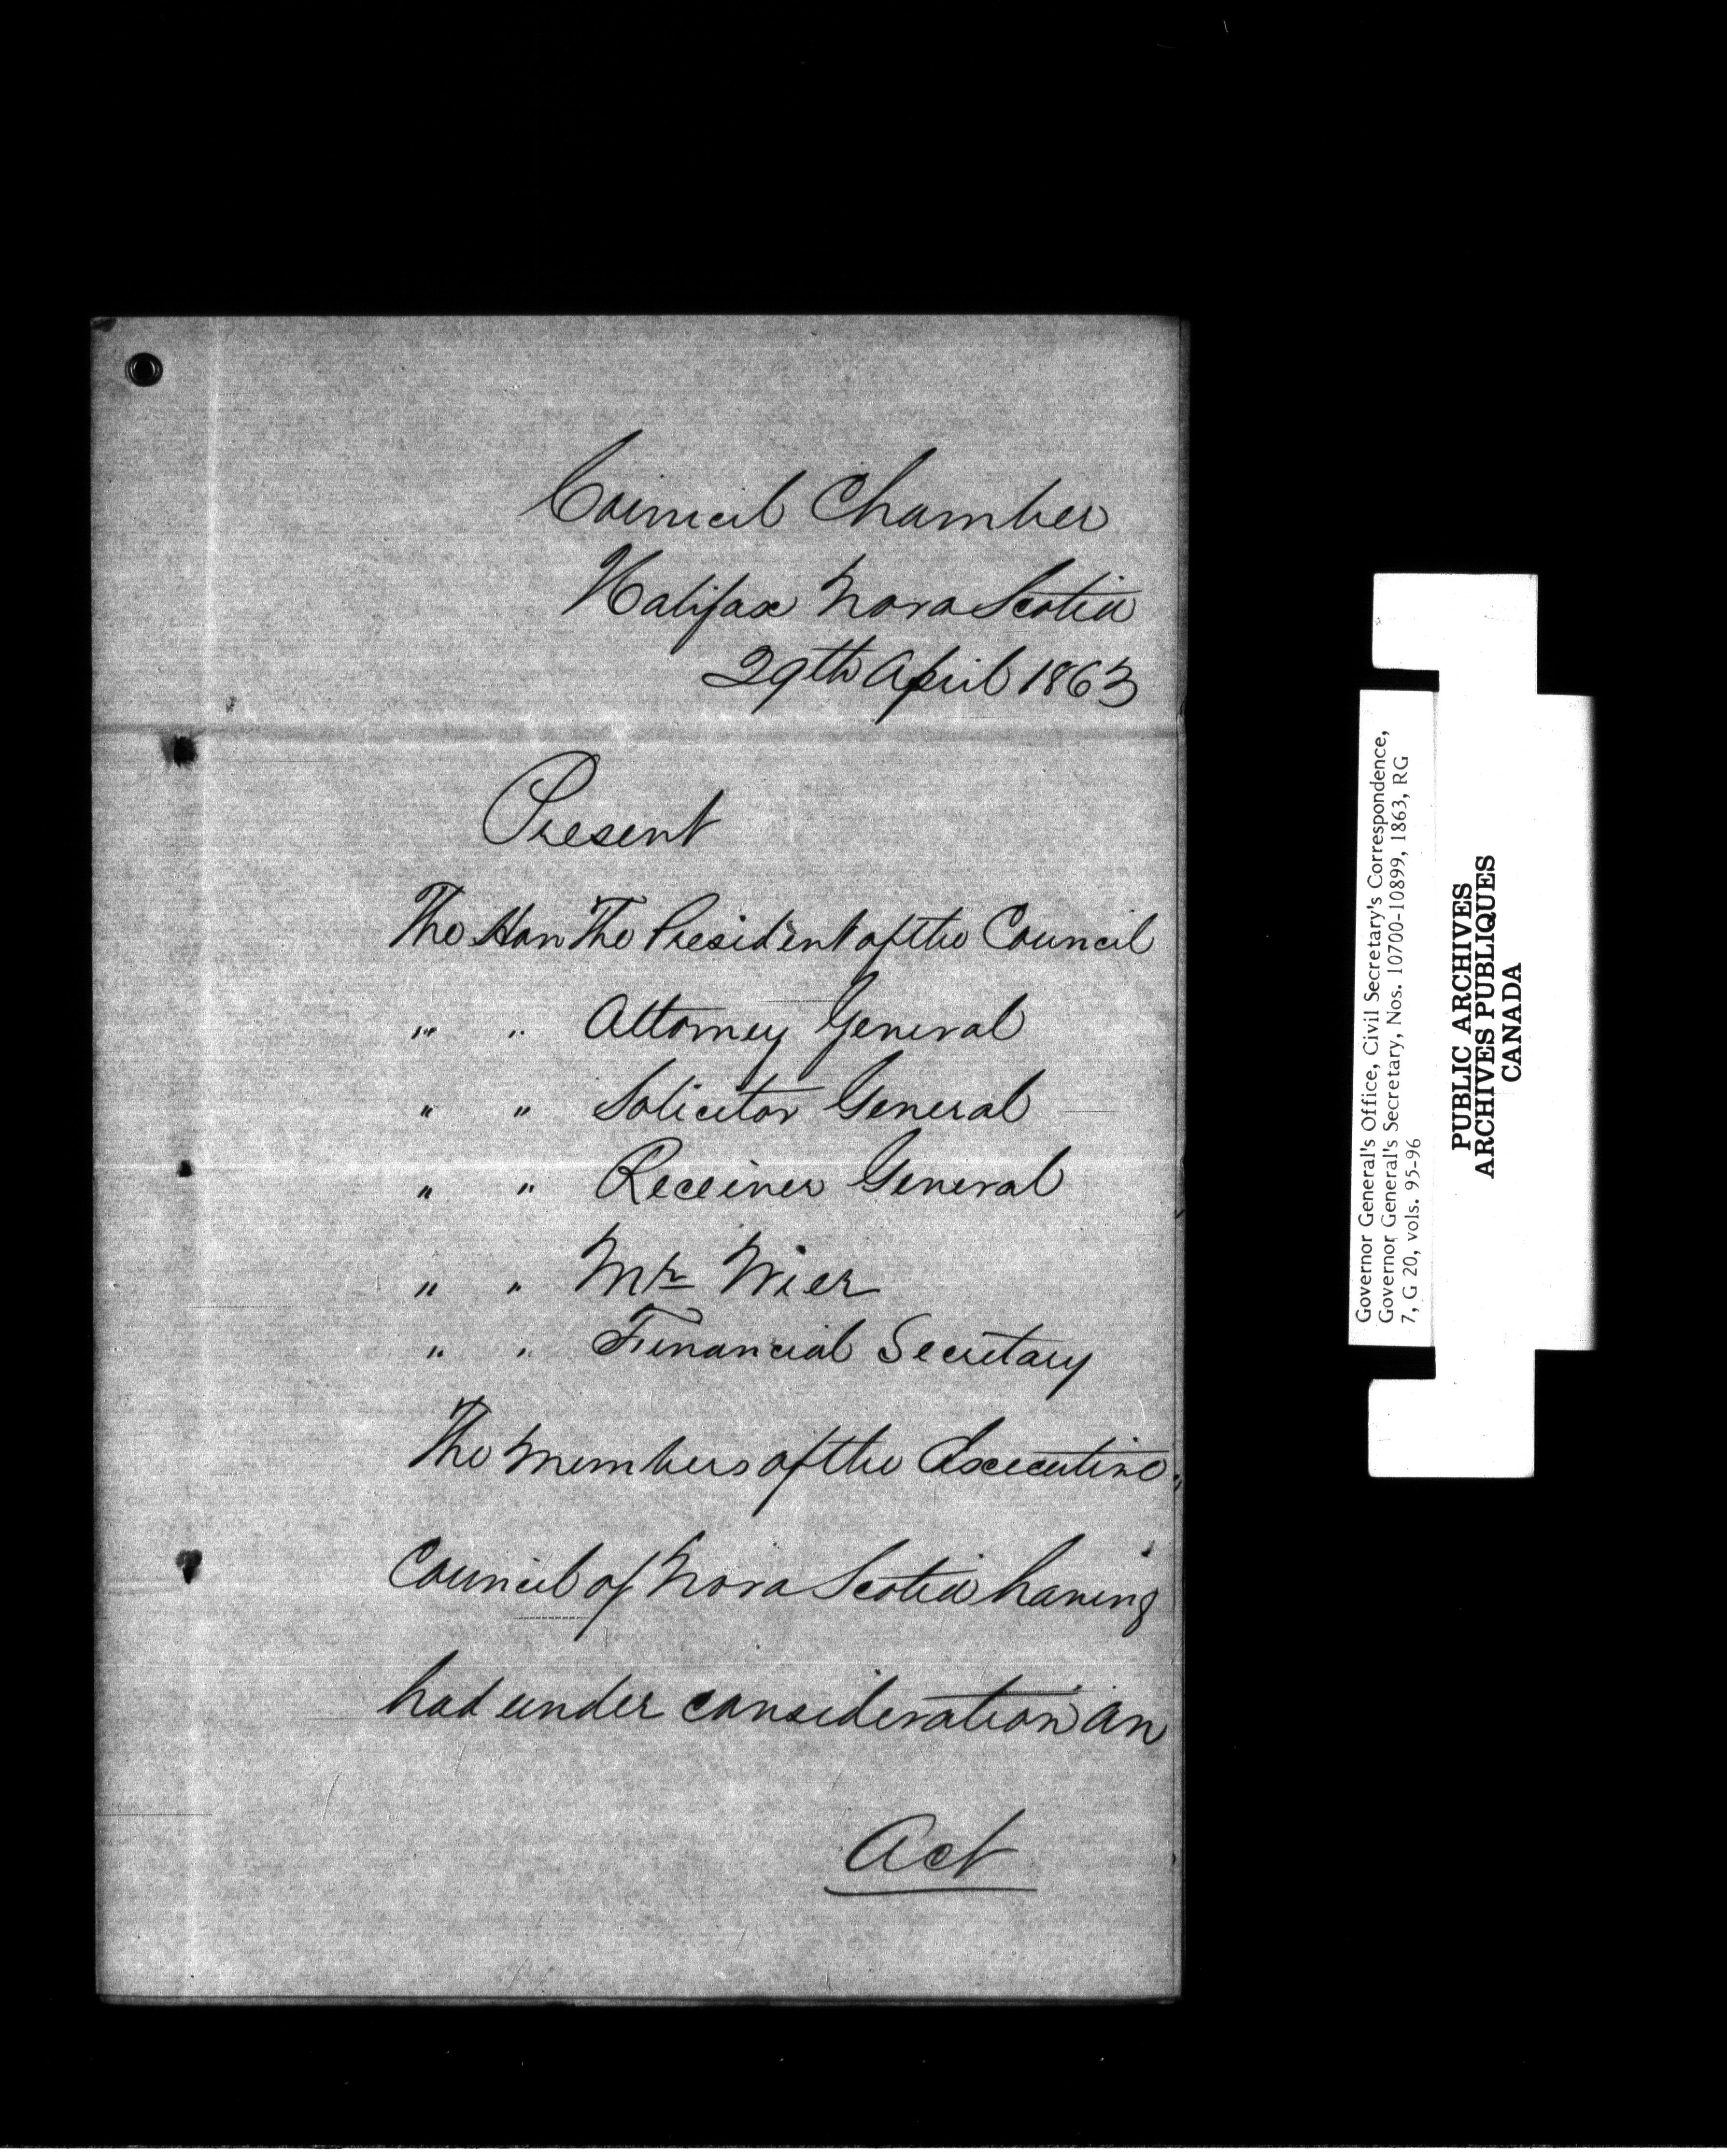 Council Chamber
Halifax Nova Scotia
29th April 1863
Present
The Hon The President of the Council
" " Attorney General
" " Solicitor General
" " Receiver General
" " Mr Wier
" " Financial Secretary
The members of the Executive
Council of Nova Scotia having
had under consideration an
Act
Governor General's Office, Civil Secretary's Correspondence,
Governor General's Secretary, Nos. 10700-10899, 1863, RG
7, G 20, vols. 95-96
PUBLIC ARCHIVES
ARCHIVES PUBLIQUES
CANADA